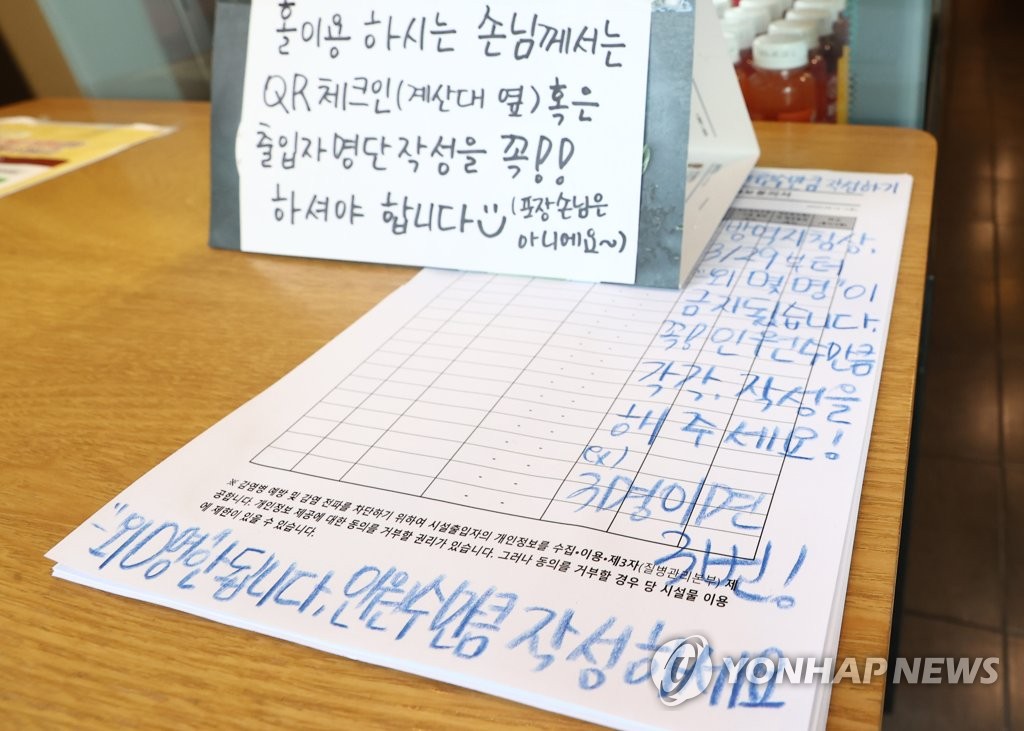 홀이용 하시는 손님께서는
QR체크인(계산대 옆)혹은
출입자명단작성을 꼭!!
하셔야 합니다
(포장손님은
아니에요~)
만큼 작성하기
방역지침상,
3/29부터
"외 몇명"이
금지됐습니다.
꼭! 인원수만큼
각각, 작성을
해 주세요!
ex)
3명이면
3번!
※ 감염병 예방 및 감염 전파를 차단하기 위하여 시설출입자의 개인정보를 수집•이용•제3자(질병관리본부) 제
공합니다. 개인정보 제공에 대한 동의를 거부할 권리가 있습니다. 그러나 동의를 거부할 경우 당 시설물 이용
에 제한이 있을 수 있습니다.
"외0명"안됩니다. 인원수만큼 작성하세요
YONHAP NEWS